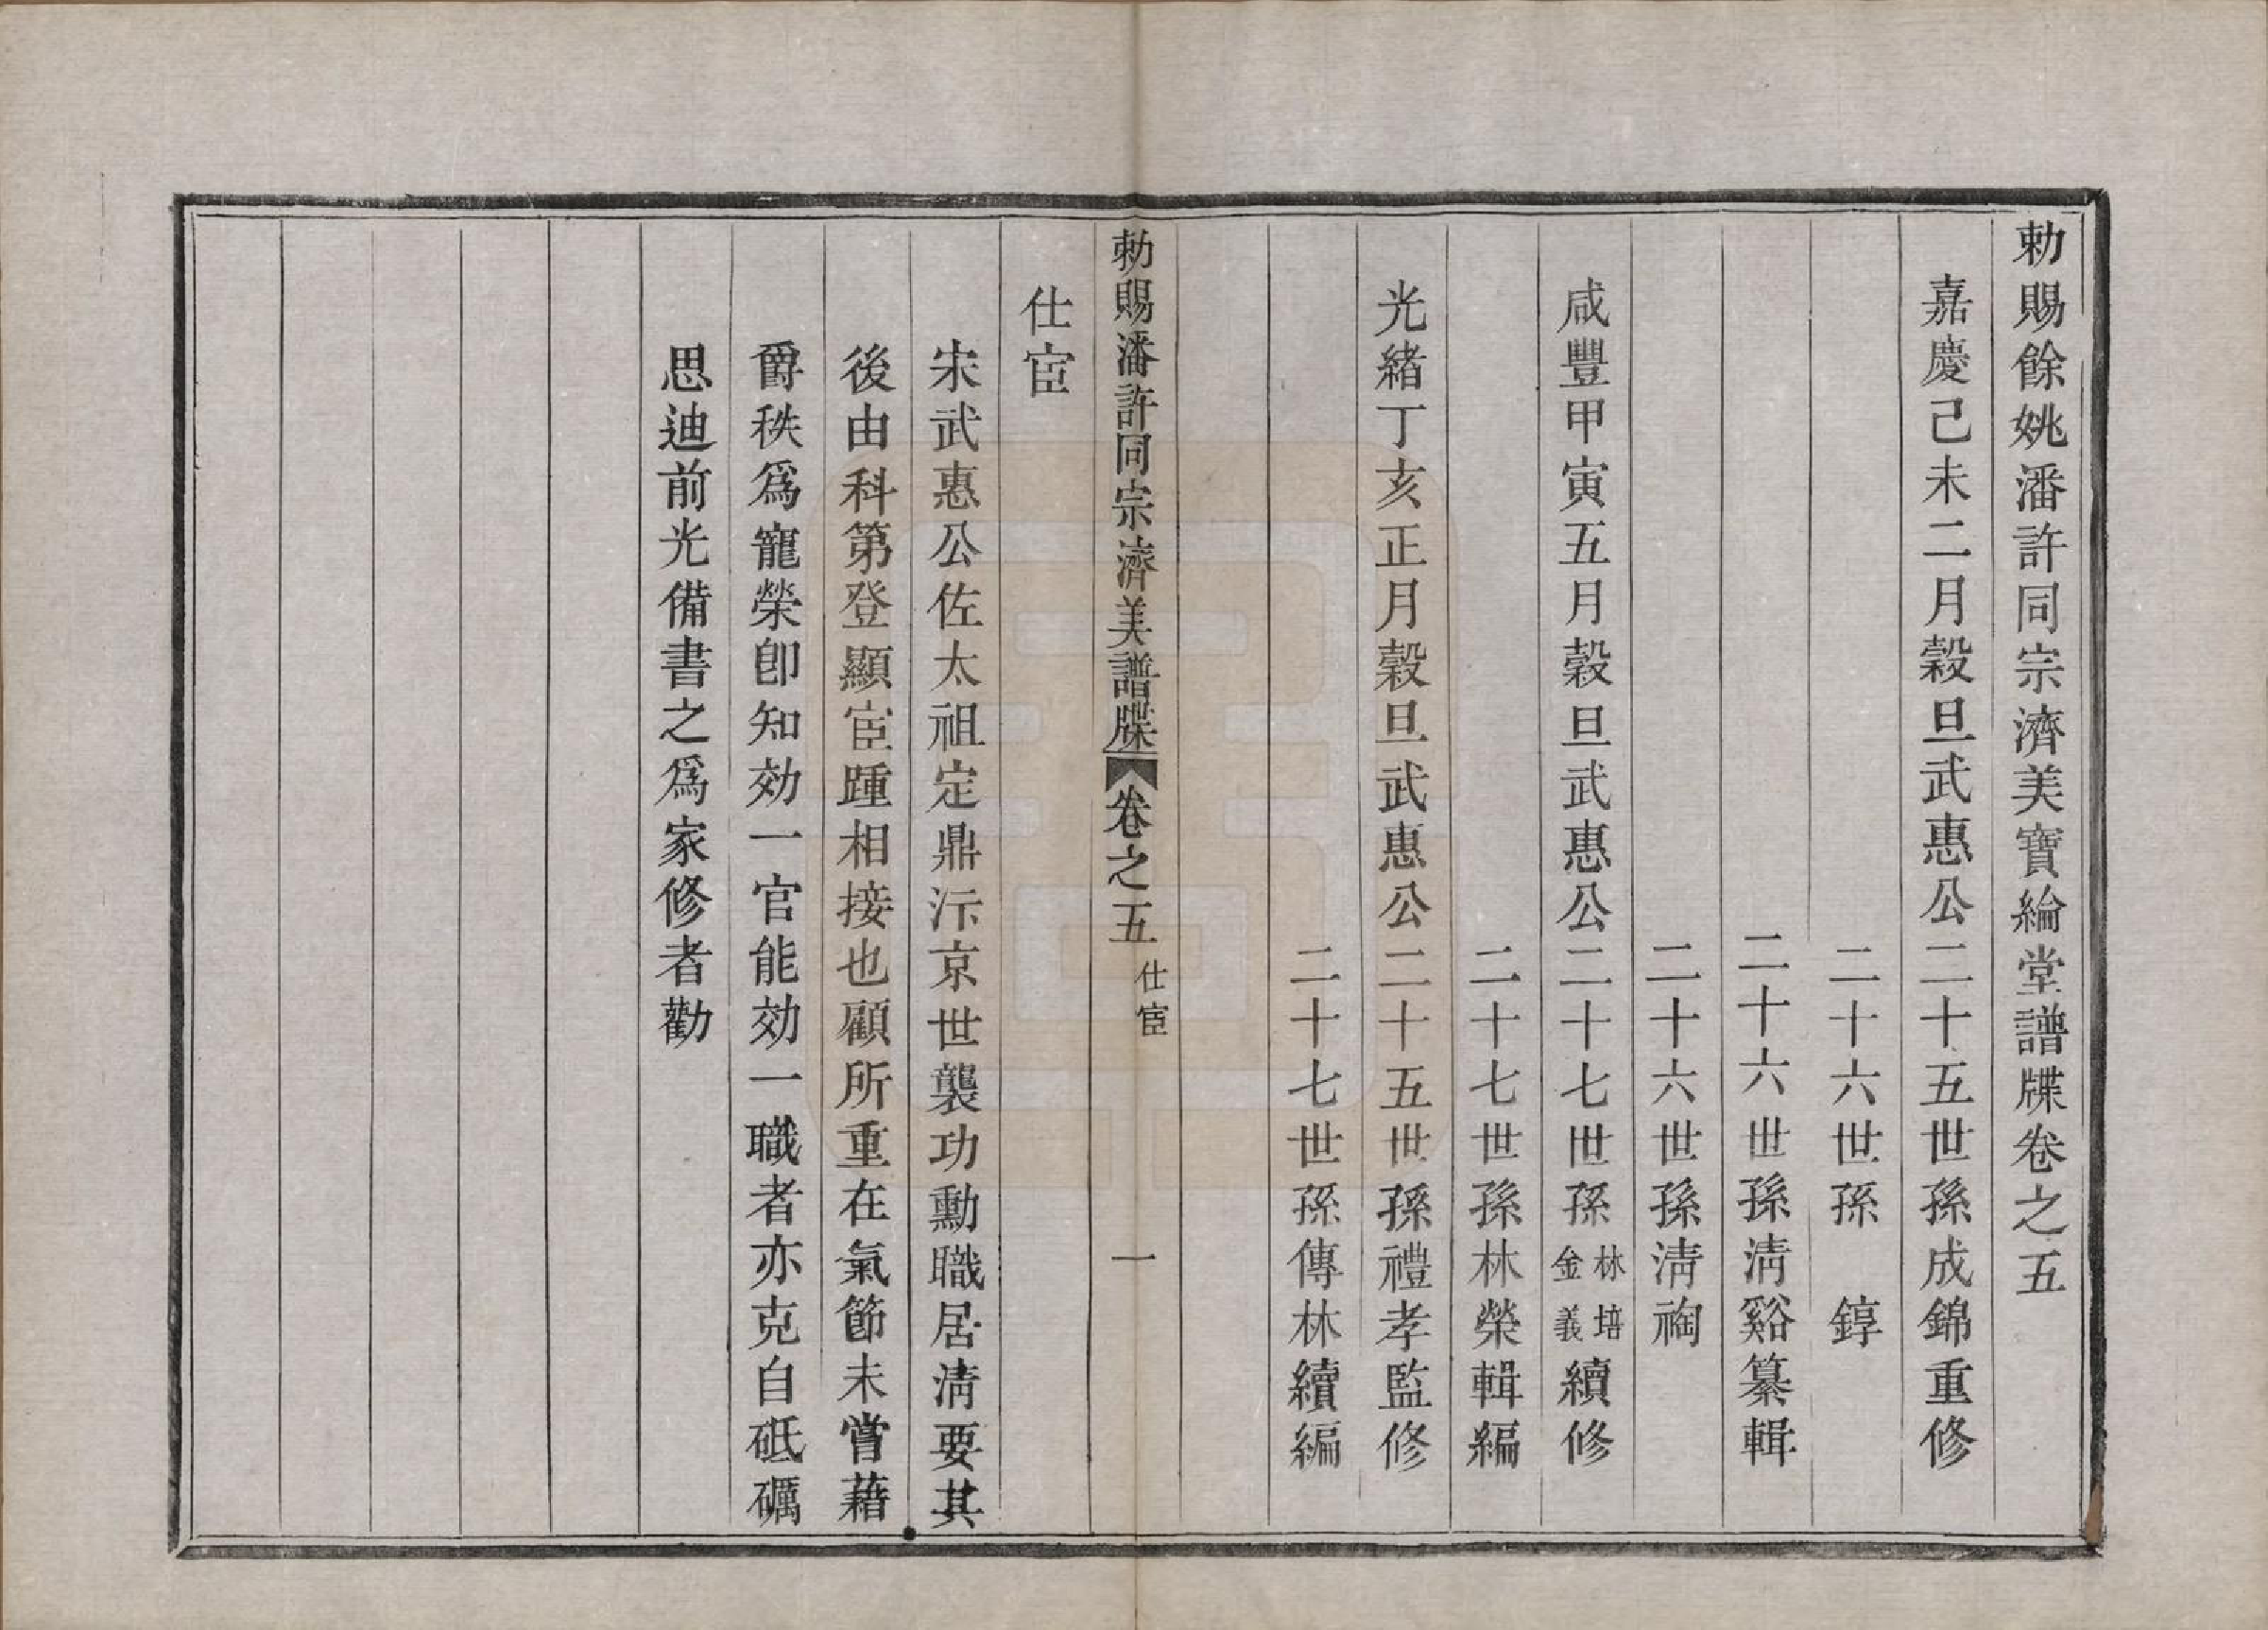 勅賜餘姚潘許同宗濟美寶綸堂譜牒卷之五
嘉慶己未二月穀旦武惠公二十五世孫成錦重修
二十六世孫　錞
二十六世孫淸谿纂輯
二十六世孫淸祹
咸豐甲寅五月穀旦武惠公二十七世孫林培金義續修
二十七世孫林榮輯編
光緒丁亥正月穀旦武惠公二十五世孫禮孝監修
二十七世孫傳林續編
勅賜潘許同宗濟美譜牒　卷之五　仕宦　一
仕宦
宋武惠公佐太祖定鼎汴京世襲功勳職居淸要其
後由科第登顯宦踵相接也顧所重在氣節未嘗藉
爵秩爲寵榮卽知効一官能効一職者亦克自砥礪
思迪前光備書之爲家修者勸